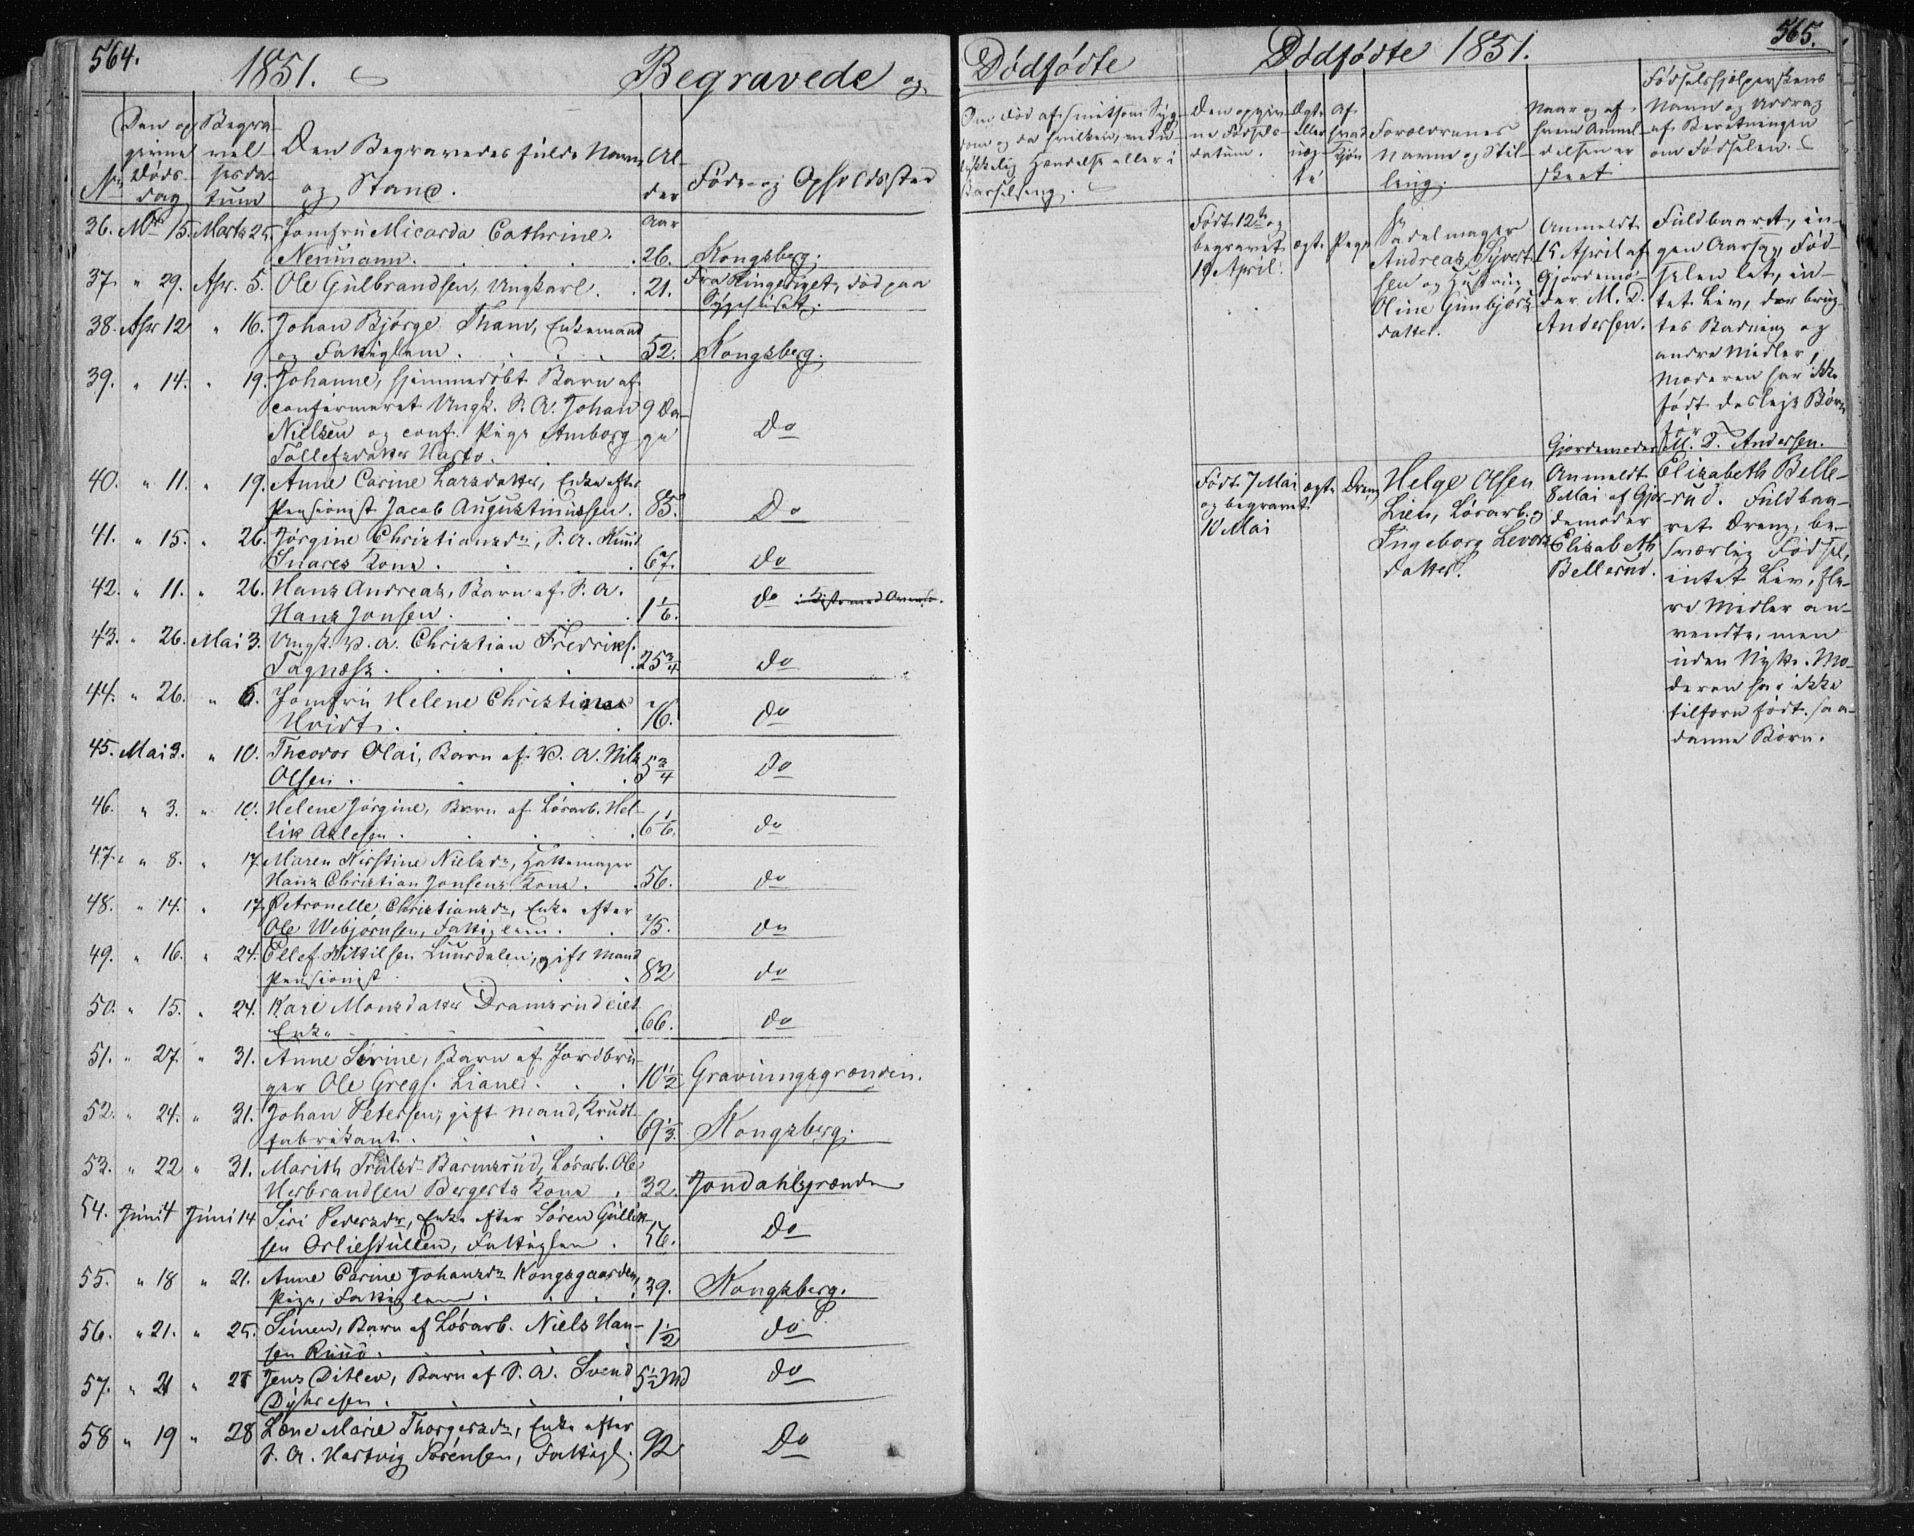 564.
1851.
Begravede og
Den op-
givne
Døds-
dag
Begra-
vel-
sesda-
tum
Den Begravedes fulde Navn
og Stand.
Al-
der
Føde- og Opholdssted
No
36. Mts 15. Marts 25. Jomfru Micarda Cathrine
Neumann. Aar 26. Kongsberg.
37. " 29. Apr. 5. Ole Gulbrandsen, Ungkarl. 21. Fra Ringeriget, død paa
Sygehuset.
38. Apr 12 " 16. Johan Bjørge Tham, Enkemand
og Fattiglem. 52. Kongsberg.
39. " 14. " 19. Johanne, hjemmedøbt Barn af
confirmeret Ungk. S. A. Johan 9 Da-
Nielsen og conf. Pige Amborg ge Do
Tollefsdatter
40. " 11. " 19. Anne Carine Larsdatter, Enke efter
Pensionist Jacob Augustinussen. 85. Do
41. " 15. " 26. Jørgine Christiansdr, S. A. Knud
Snares Kone. 67. do
42. " 11. " 26. Hans Andreas, Barn af S. A.
Hans Jonsen. 1 1/6. do
43. " 26. Mai 3. Ungk. V. A. Christian Fredriks.
Tagness. 25 3/4 do
44. " 26. " 6. Jomfru Helene Christines
Hvidt. 76. do
45. Mai 3. " 10. Theodor Olai, Barn af V. A. Nils
Olsen. 5 3/4 do
46. " 3. " 10. Helene Jørgine, Barn af Løsarb. Hel-
lik Aslesen. 6 1/6. do
47. " 8. " 17. Maren Kirstine Nielsdr, Hattemager
Hans Christian Jonsens Kone. 56. do
48. " 14. " 17. Petronelle Christiansdr, Enke efter
Ole Webjørnsen, Fattiglem. 75. do
49. " 16. " 24. Ellef Kittilsen Luursdalen, gift Mand
Pensionist. 82 do
50. " 15. " 24. Kari Monsdatter Dramsrudeiet
Enke 66. do
51. " 27. " 31. Anne Serine, Barn af Jordbru-
ger Ole Gregs. Liane. 10 1/2 Gravningsgrænden.
52. " 24. " 31. Johan Petersen, gift Mand, Krudt-
fabrikant. 69 1/3 Kongsberg.
53. " 22 " 31. Marith Trulsdr Barmsrud, Løsarb. Ole
Herbrandsen Bergerts Kone. 32. Jondahlsgrænden
54. Juni 4 Juni 14 Siri Pedersdr, Enke efter Søren Gullik-
sen Orliestullen, Fattiglem. 56. do
55. " 18 " 21. Anne Carine Johansdr Kongsgaarden,
Pige, Fattiglem. 39. Kongsberg.
56. " 21. " 25. Simen, Barn af Løsarb. Niels Han-
sen Ruud. 1 1/2 do
57. " 21 " 28 Jens Ditlev, Barn af S. A. Svend
Dyhresen. 5 1/2 Md do
58 " 19 " 28 Lene Marie Thorgersdr, Enke efter
S. A. Hartvig Sørensen, Fattigl. 92 Do
565.
Dødfødte
Dødfødte 1851.
Om død af smitsom Syg-
dom og da hvilken, ved u-
lykkelig Hændelse eller i
Barselseng.
Den opgiv-
ne Fødsels-
datum.
Ægte
eller
uæg-
te
Af
hvad
Kjøn
Forældrenes
Navn og Stil-
ling.
Naar og af
hvem Anmel-
delsen er
skeet
Fødselshjelperskens
Navn og Uddrag
af Beretningen
om Fødselen.
Født 12te og
begravet
19 April.
ægte
Pige
Sadelmager
Andreas Syvert-
sen og Hustru
Oline Gunbjørns-
datter.
Anmeldt
15 April af
Gjordemo-
der M. D.
Andersen.
Fuldbaaret, in-
gen Aarsag, Fød-
selen let, in-
tet Liv, der brug-
tes Badning og
andre Midler,
Moderen har ikke
født desligt Børn
før
Gjordemoder M. D. Andersen.
Født 7 Mai
og begravet
10 Mai
ægte
Dreng
Helge Olsen
Lien, Løsarb. og
Ingeborg Levors-
datter.
Anmeldt
8 Mai af Gjor-
demoder
Elisabeth
Bellerud.
Elizabeth Belle-
rud. Fuldbaa-
ret Dreng, be-
sværlig Fødsel,
intet Liv, fle-
re Midler an-
vendte, men
uden Nytte. Mo-
deren har ikke
tilforn født saa-
danne Børn.